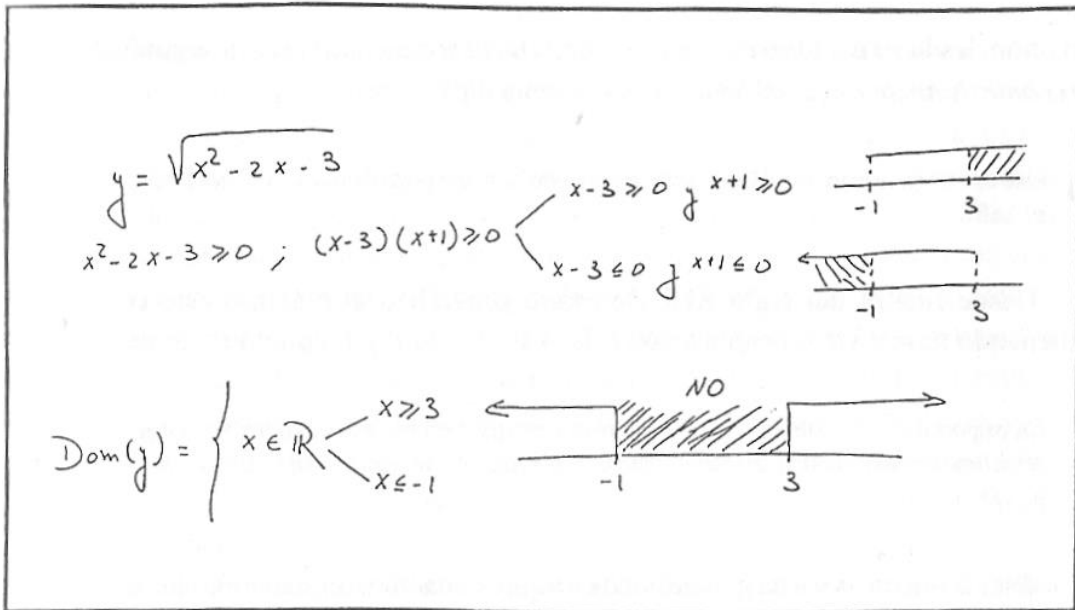 y = √x² - 2x - 3
x² - 2x - 3 ⩾ 0 ; (x-3)(x+1) ⩾ 0
x-3 ⩾ 0 y x+1 ⩾ 0
-1 3
x-3 ≤ 0 y x+1 ≤ 0
-1 3
Dom(y) = { x ∈ ℝ
x ⩾ 3
x ≤ -1
NO
-1 3